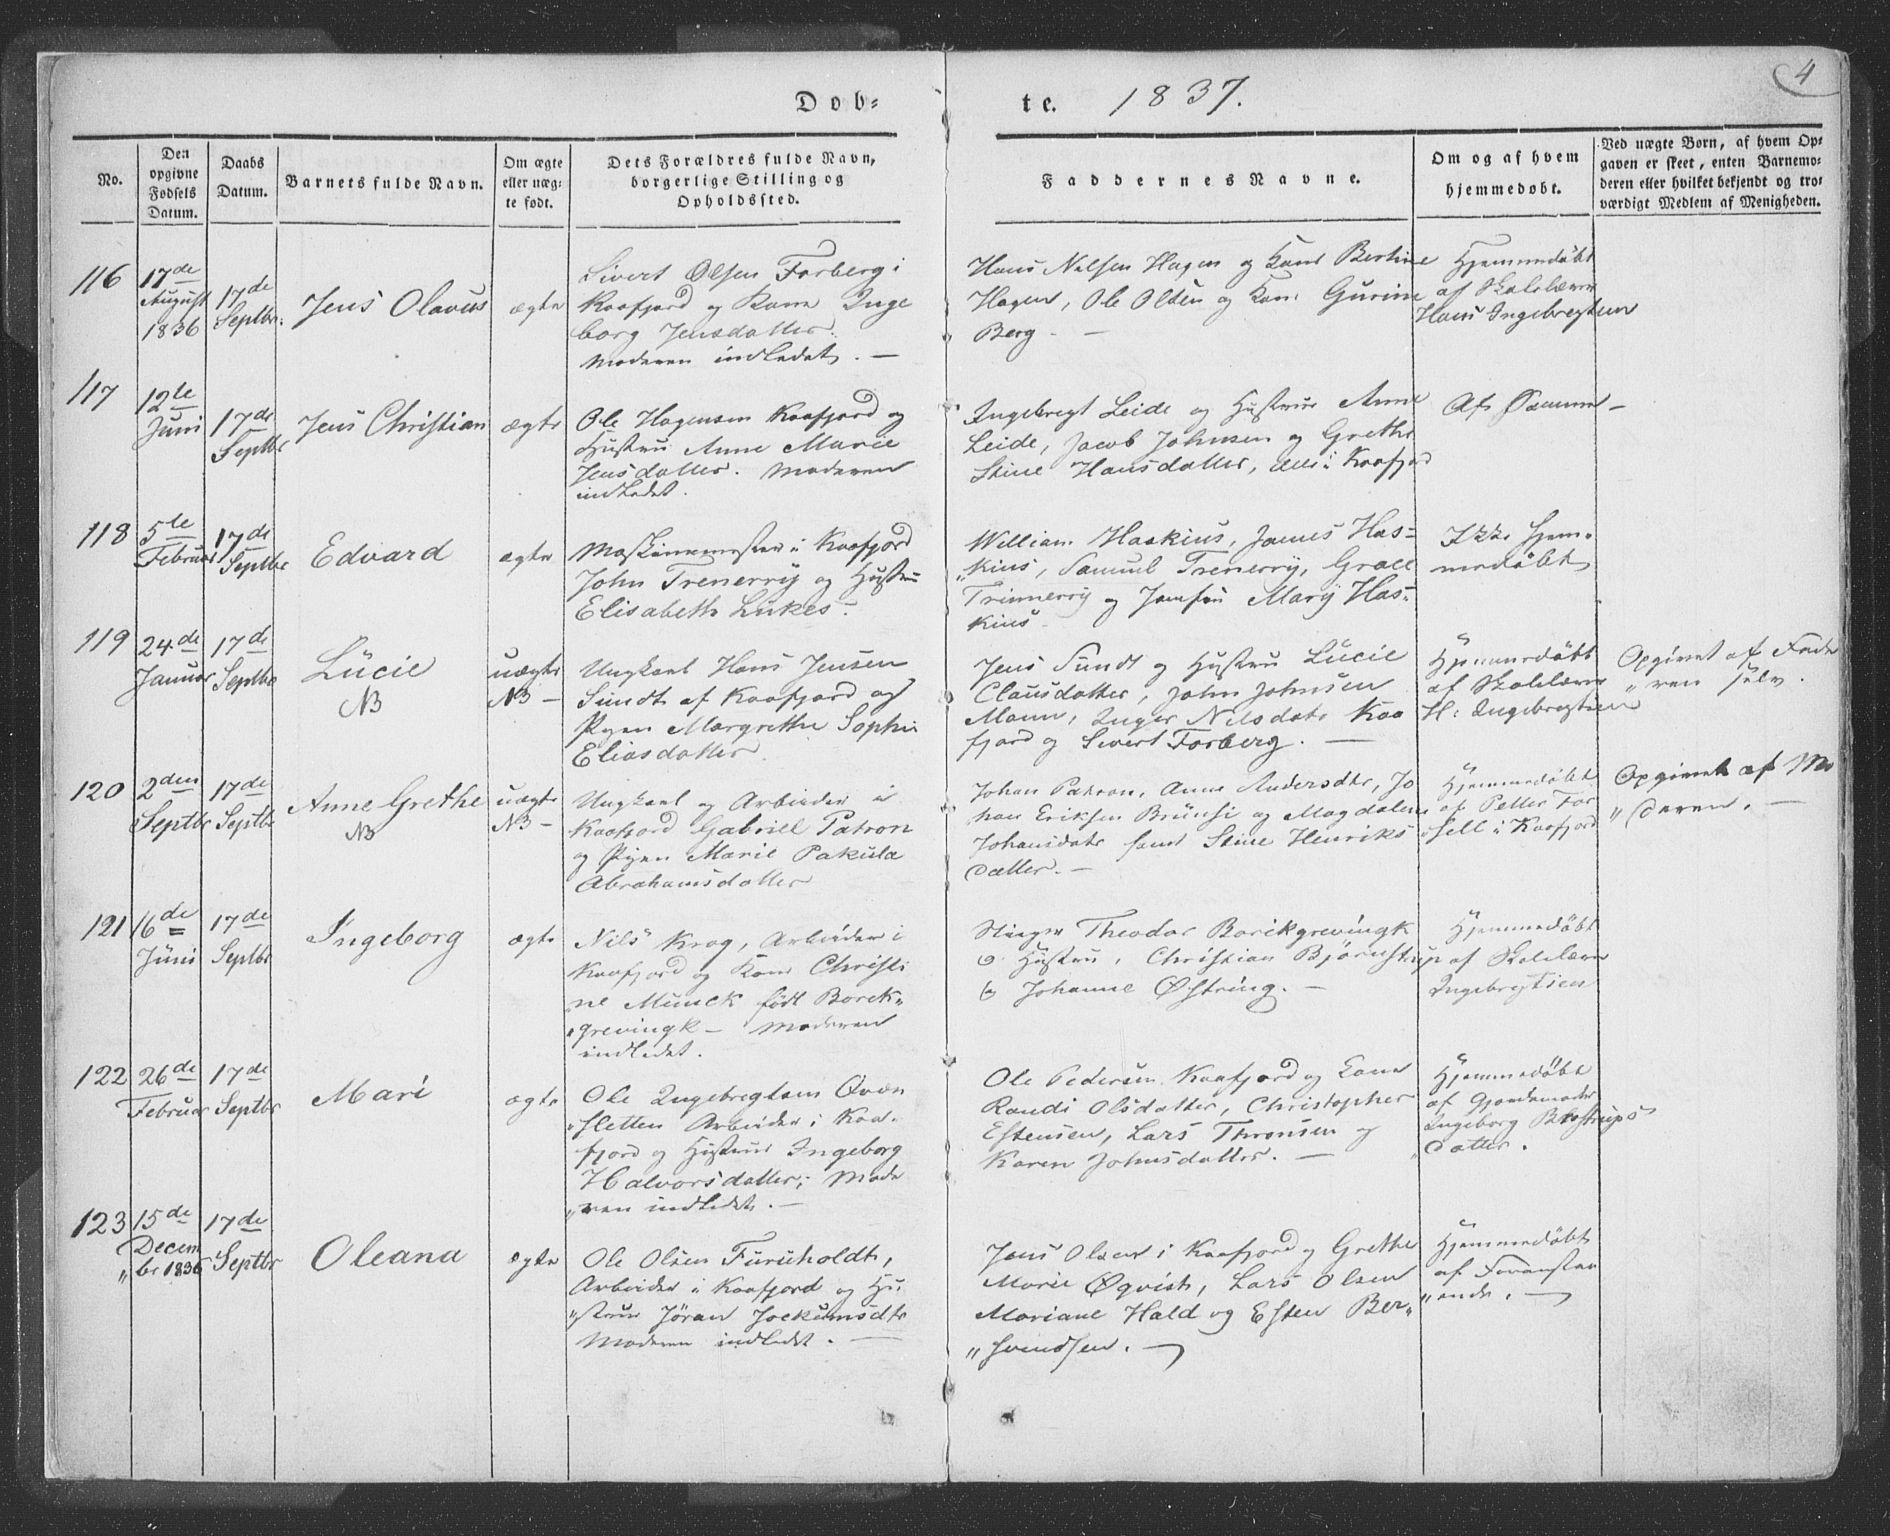 4
Døb-
te. 1837.
No.
Den opgivne Fødsels Datum.
Daabs Datum.
Barnets fulde Navn.
Om ægte eller uæg-te født.
Dets Forældres fulde Navn, borgerlige Stilling og Opholdssted.
Faddernes Navne.
Om og af hvem hjemmedøbt.
Ved uægte Børn, af hvem Op-gaven er skeet, enten Barnemo-deren eller hvilket bekjendt og tro-værdigt Medlem af Menigheden.
116
17de
August
1836
17de
Septbr.
Jens Olavus
ægte
Sivert Olsen Forberg i
Kaafjord og Kone Inge
borg Jensdatter.
Moderen indledet. —
Hans Nilsen Hagen og Kone Bertine
Hagen, Ole Olsen og Kone Gurine
Berg. —
Hjemmedöbt
af Skolelærer
Hans Ingebregtsen
117
12te
Juni
17de
Septbr
Jens Christian
ægte
Ole Hagensen Kaafjord og
Hustru Anne Marie
Jensdatter. Moderen
indledet.
Ingebregt Leide og Hustrue Anne
Leide, Jacob Johnsen og Grethe
Stine Hansdatter, alle i Kaafjord
Af Samme —
118
5te
Februar
17de
Septbr
Edvard
ægte
Maskinmester i Kaafjord
John Trenerrÿ og Hustru
Elisabeth Lukes.
William Haskins, James Has-
"kins, Samuel Trenerrÿ, Grace
Trinnerrÿ og Jomfru Marÿ Has-
kins.
Ikke hjem-
medöbt
119
24de
Januar
17de
Septbr
Lücie
NB
uægte
NB —
Ungkarl Hans Jensen
Sundt af Kaafjord og
Pigen Margrethe Sophie
Eliasdatter.
Jens Sundt og Hustru Lucie
Clausdatter, John Johnsen
Moen, Inger Nilsdatr Kaa
fjord og Sivert Forberg. —
Hjemmedöbt
af Skolelærer
H: Ingebregtsen
Opgivet af Fade
"ren selv.
120
2den
Septbr
17de
Septbr
Anne Grethe
NB
uægte
NB —
Ungkarl og Arbeider i
Kaafjord Gabriel Patron
og Pigen Marie Pakula
Abrahamsdatter
Johan Patron, Anne Andersdtr, Jo
han Eriksen Brünsi og Magdalene
Johansdatr samt Stine Henriks
datter. —
Hjemmedöbt
af Petter For
"sell i Kaafjord
Opgivet af Mo
"deren. —
121
16de
Jüni
17de
Septbr
Ingeborg
ægte
Nils Krog, Arbeider i
Kaafjord og Kone Christi
ne Munck födt Borck-
"grevingk — Moderen
indledet.
Theodor Borckgrevingk
og Hustru, Christian Björnstrup
og Johanne Østring. —
Hjemmedöbt
af Skolelærer
Ingebregtsen
122
26de
Februar
17de
Septbr
Mari
ægte
Ole Ingebregtsen Qvæn
"sletten Arbeider i Kaa-
fjord og Hustrue Ingeborg
Halvorsdatter; Mode
"ren indledet. —
Ole Pedersen Kaafjord og Kone
Randi Olsdatter, Christopher
Estensen, Lars Thronsen og
Karen Johnsdatter. —
Hjemmedöbt
af Gjordemoder
Ingeborg Brostrups
datter.
123
15de
Decem
"br 1836
17de
Septbr
Oleana
ægte
Ole Olsen Furuholdt,
Arbeider i Kaafjord og Hu
"strue Jöran Jockumsdtr
Moderen indledet. —
Jens Olsen i Kaafjord og Grethe
Marie Øqvist, Lars Olsen
Mariane Hald og Esten Ber-
"svendsen. —
Hjemmedöbt
af Foranstaa
"ende. —